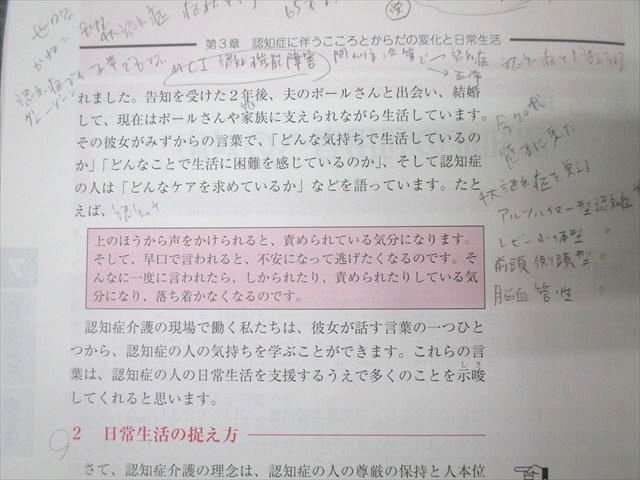 65才
第3章 認知症に伴うこころとからだの変化と日常生活
MCI 認知機能障害
認知症
正常
れました。告知を受けた2年後、夫のポールさんと出会い、結婚
して、現在はポールさんや家族に支えられながら生活しています。
その彼女がみずからの言葉で、「どんな気持ちで生活しているの
か」「どんなことで生活に困難を感じているのか」、そして認知症
の人は「どんなケアを求めているか」などを語っています。たと
えば、
上のほうから声をかけられると、責められている気分になります。
そして、早口で言われると、不安になって逃げたくなるのです。そ
んなに一度に言われたら、しかられたり、責められたりしている気
分になり、落ち着かなくなるのです。
認知症介護の現場で働く私たちは、彼女が話す言葉の一つひと
つから、認知症の人の気持ちを学ぶことができます。これらの言
葉は、認知症の人の日常生活を支援するうえで多くのことを示唆
してくれると思います。
2 日常生活の捉え方
さて、認知症介護の理念は、認知症の人の尊厳の保持と人本位
アルツハイマー型認知症
レビー小体型 〃
前頭側頭型 〃
脳血管性 〃